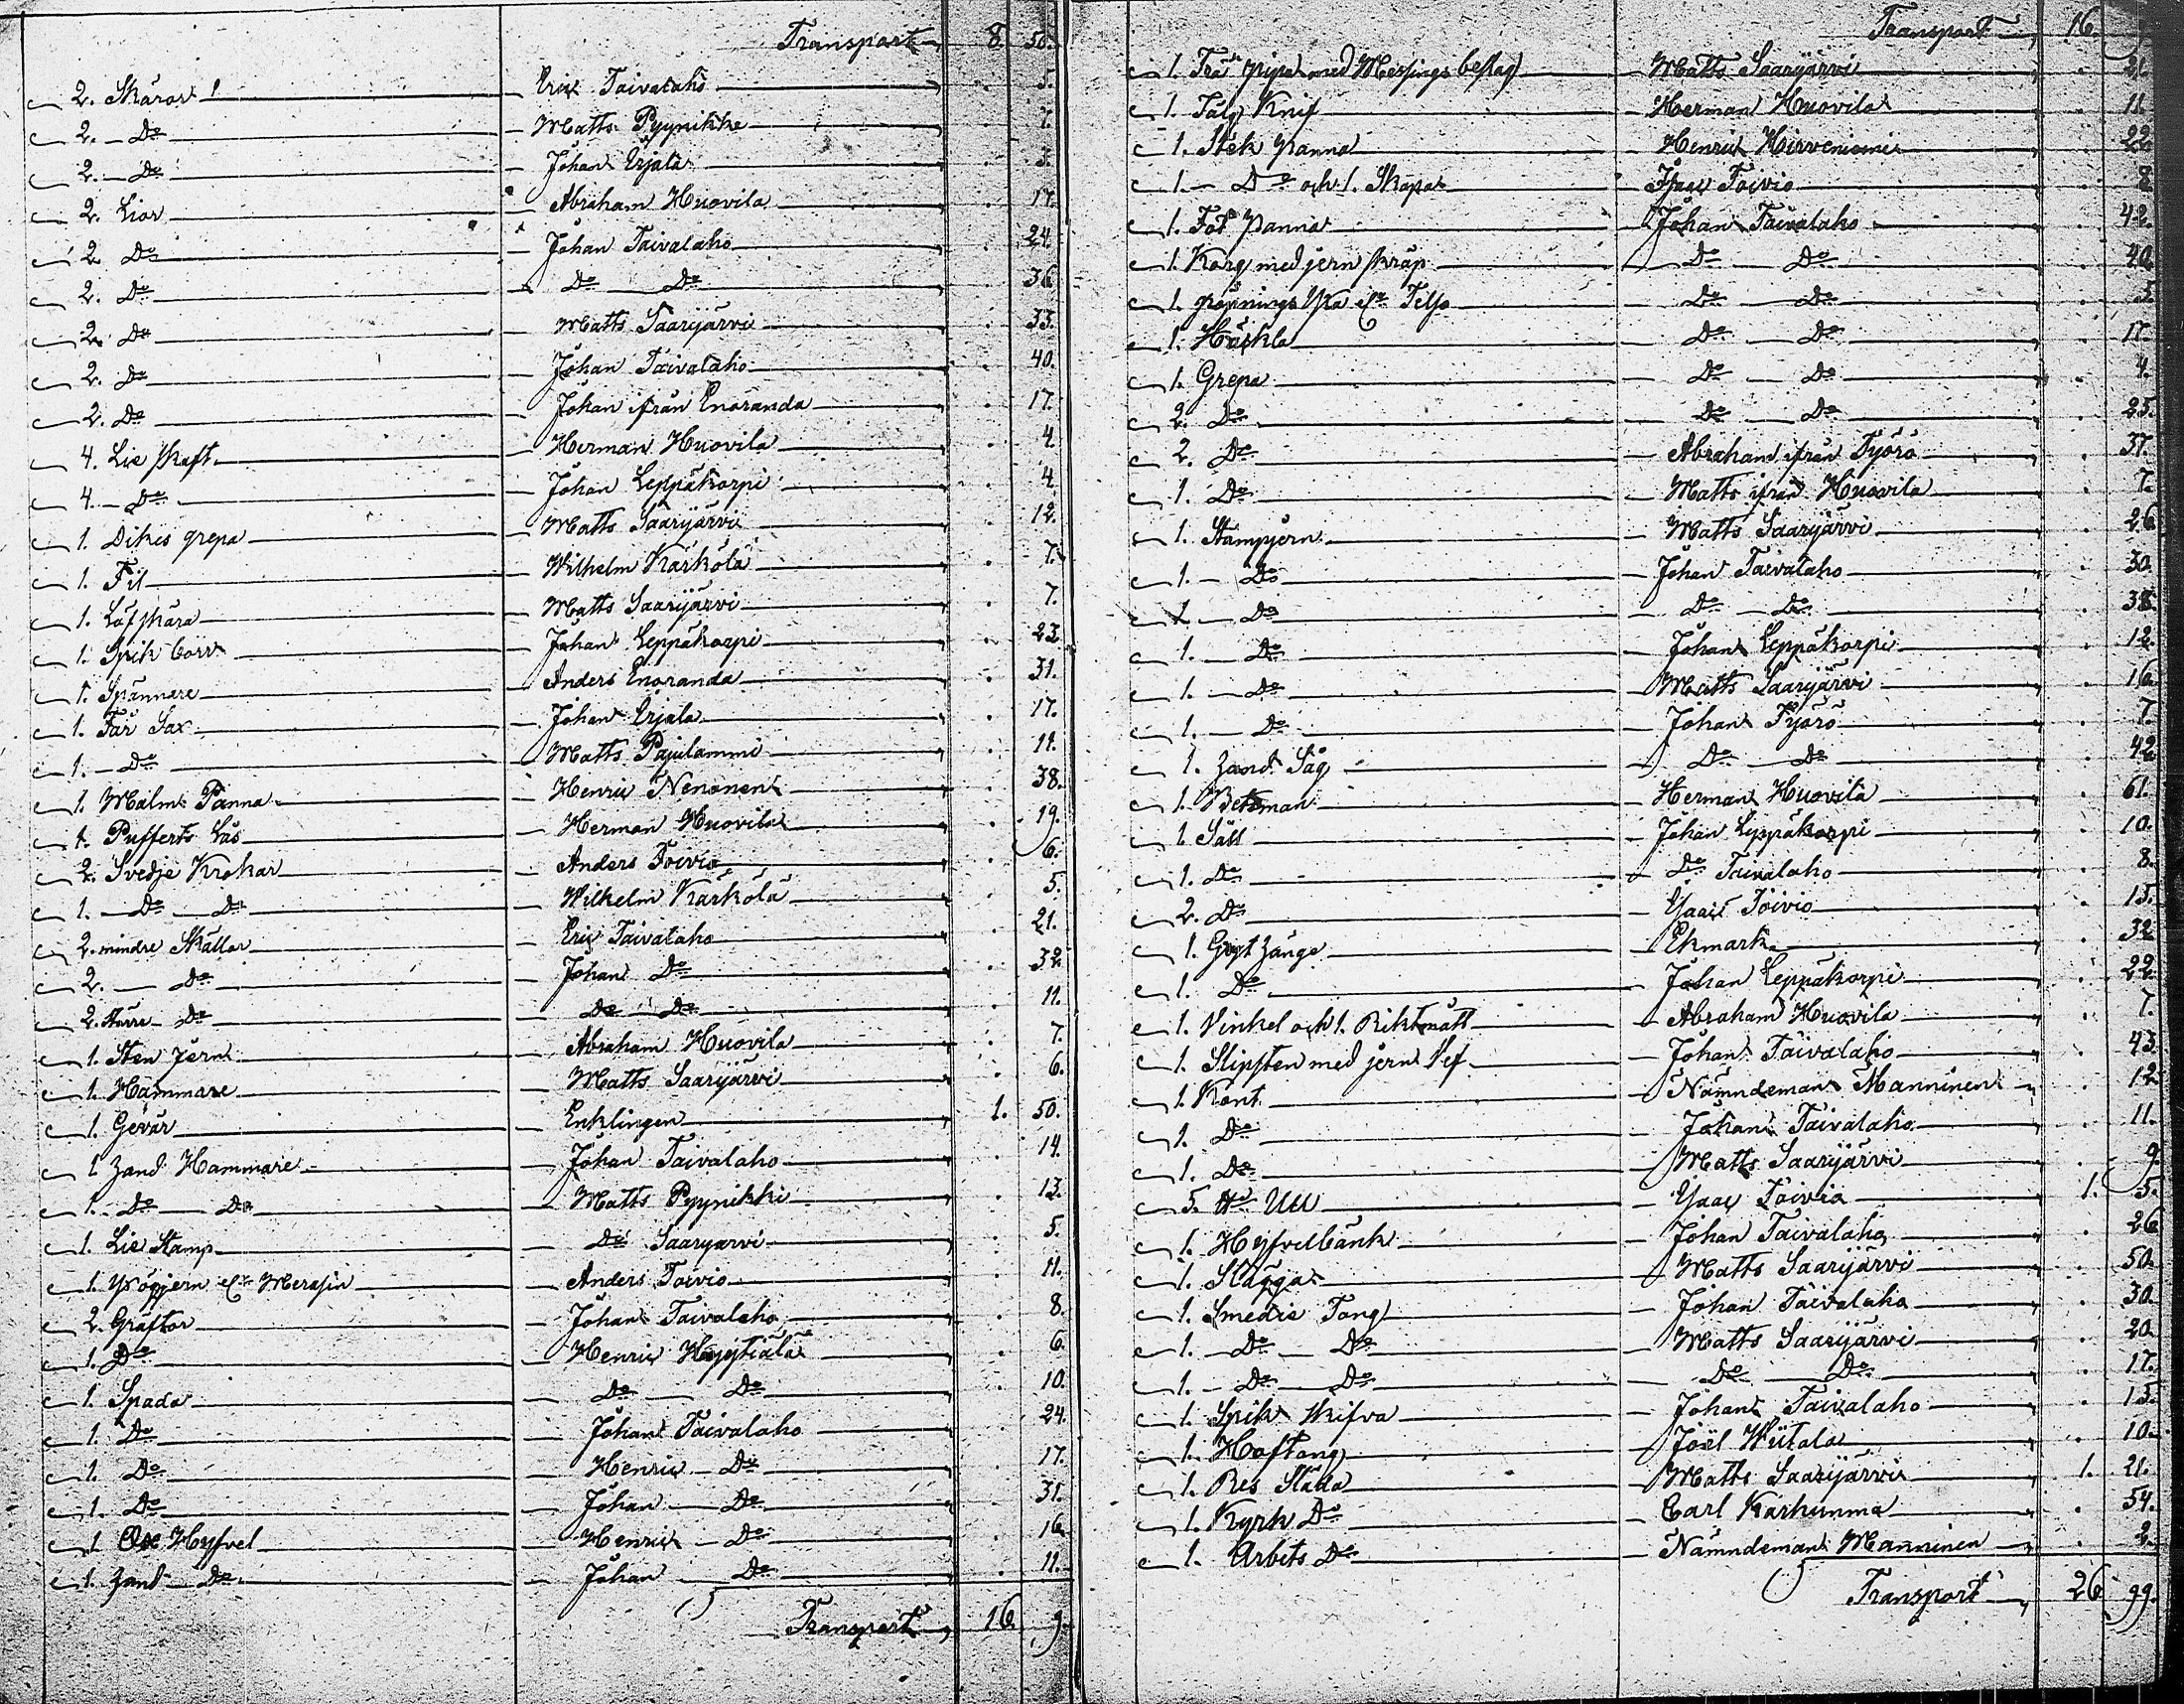 Transport 8. 50.
2. Skäror Eric Taivalaho 5.
2. Do Matts Pyynikke 7.
2. Do Johan Erjala 3.
2. Lior Abraham Huovila 17.
2. Do Johan Taivalaho 24.
2. Do Do Do 36.
2. Do Matts Saarijärvi 33.
2. Do Johan Taivalaho 40.
2. Do Johan ifrån Enoranda 17.
4. Lie skaft Herman Huovila 4.
4. Do Johan Leppäkorpi 4.
1. Dikes grepa Matts Saarijärvi 12.
1. Fil Wilhelm Kärkölä 7.
1. Löfskära Matts Saarijärvi 7.
1. Spik borr Johan Leppäkorpi 23.
1. Spännare Anders Enoranda 31.
1. Får Sax Johan Erjala 17.
1. Do Matts Pajulammi 11.
1. Malm Panna Henric Nenonen 38.
1. Pufferts Lås Herman Huovila 19.
2. Svedje Krokar Anders Toivio 6.
1. Do Do Wilhelm Kärkölä 5.
2. mindre Skällor Eric Taivalaho 21.
2. Do Johan Do 32.
2. större Do Do Do 11.
1. Sten jern Abraham Huovila 7.
1. Hammare Matts Saarijärvi 6.
1. Gevär Enklingen 1. 50.
1. Hand Hammare Johan Taivalaho 14.
1. Do Do Matts Pyynikki 13.
1. Lie Stamp Do Saarijärvi 5.
1. Anders Toivio 11.
2. Gräftor Johan Taivalaho 8.
1. Do Henric 6.
1. Spada Do Do 10.
1. Do Johan Taivalaho 24.
1. Do Henric Do 17.
1. Do Johan Do 31.
1. Ox Hyfvel Henric Do 16.
1. Hand Do Johan Do 11.
Transport 16. 9.
Transport 16. 9.
1. Trä pipa med Messings beslag Matts Saarijärvi 21.
1. Tälg Knif Herman Huovila 11.
1. Stek panna Henric Hirveniemi 22.
1. Do och 1. Skopa Isaac Toivio 8.
1. Fot Panna Johan Taivalaho 42.
1. Korg med jern skrap Do Do 40.
1. Do Do 5.
1. Häckla Do Do 17.
1. Grepa Do Do 4.
2. Do Do Do 25.
2. Do Abraham ifrån Työrö 37.
1. Do Matts ifrån Huovila 7.
1. Stampjern Matts Saarijärvi 26.
1. Do Johan Taivalaho 30.
1. Do Do Do 38.
1. Do Johan Leppäkorpi 12.
1. Do Matts Saarijärvi 16.
1. Do Johan Työrö 7.
1. Hand Såg Do Do 42.
1. Betsman Herman Huovila 61.
1. Såll Johan Leppäkorpi 10.
1. Do Do Taivalaho 8.
2. Do Isaac Toivio 15.
1. Ekmark 32.
1. Do Johan Leppäkorpi 22.
1. Vinkel och 1. Riktmått Abraham Huovila 7.
1. Slipsten med jern Vef Johan Taivalaho 43.
1. Kont Nämndeman Manninen 12.
1. Do Johan Taivalaho 11.
1. Do Matts Saarijärvi 9.
5. Ull Isaac Toivio 1. 5.
1. Hyfvelbänk Johan Taivalaho 26.
1. Slägga Matts Saarijärvi 50.
1. Smedie Tong Johan Taivalaho 30.
1. Do Do Matts Saarijärvi 20.
1. Do Do Do Do 17.
1. Spik skifva Johan Taivalaho 15.
1. Hoftong Joël Wiitala 10.
1. Res Släda Matts Saarijärvi 1. 21.
1. Kyrk Do Carl Karhunma 54.
1. Arbets Do Nämndeman Manninen 2.
Transport 26. 99.